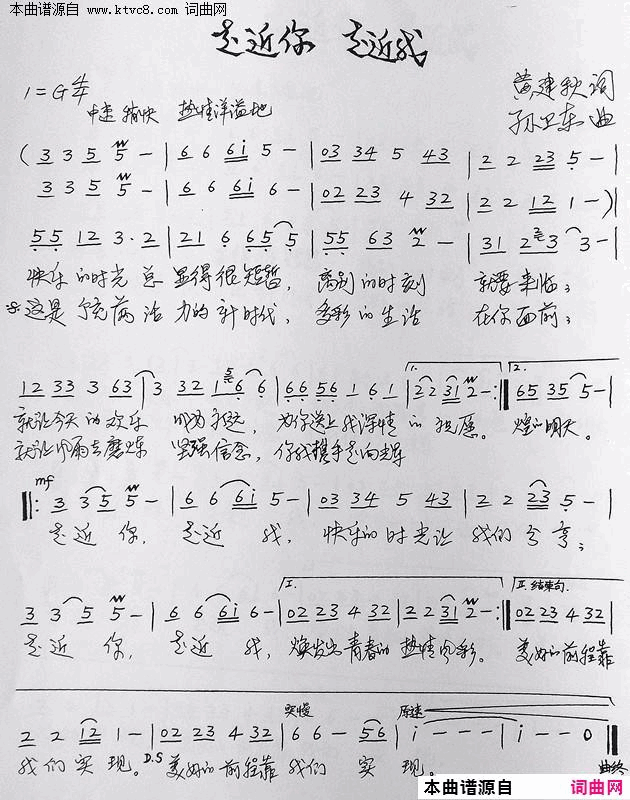 本曲谱源自
www.ktvc8.com 词曲网
走近你 走近我
黄建秋 词
孙卫东 曲
1=G
中速 稍快 热情洋溢地
( 3 3 5 5 - | 6 6 6i 5 - | 03 34 5 43 | 2 2 23 5 - |
3 3 5 5 - | 6 6 6i 6 - | 02 23 4 32 | 2 2 12 1 - )|
55 12 3· 2 | 21 6 65 5 | 55 63 2 - | 31 23 3 - |
快乐的时光总 显得很短暂, 离别的时刻 就要来临;
这是个充满活 力的新时代, 多彩的生活 在你面前;
12 33 3 63 | 3 32 1 6 6 | 66 56 1 61 | 1. 2 2 31 2 - :| 2. 65 35 5 - |
就让今天的欢乐 成为永远, 为你送上我深情的祝愿。 煌的明天。
就让风雨去磨炼 坚强信念, 你我携手走向辉
mf
|: 3 3 5 5 - | 6 6 6i 5 - | 03 34 5 43 | 2 2 23 5 - |
走近你, 走近我, 快乐的时光让我们分享;
I. II. 结束句.
3 3 5 5 - | 6 6 6i 6 - | 02 23 4 32 | 2 2 31 2 - :| 02 23 4 32 |
走近你, 走近我, 焕发出青春的热情风彩。 美好的前程靠
突慢 原速
2 2 12 1 - | 02 23 4 32 | 6 6 - 56 | i - - - | i - - 0 ||
我们实现。 D.S 美好的前程靠 我们 实现。 曲终
本曲谱源自 词曲网